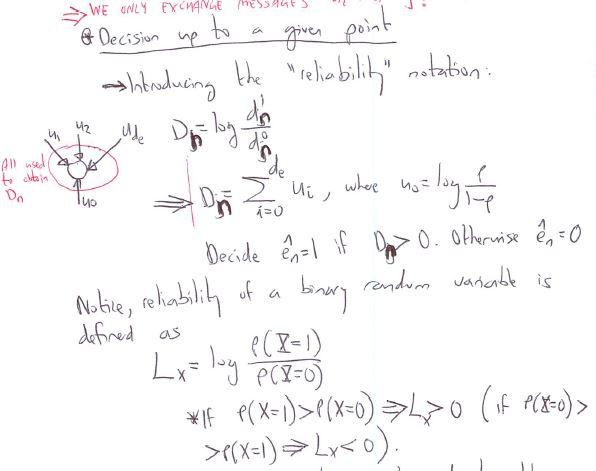 ⇒ WE ONLY EXCHANGE MESSAGES
Decision up to a given point
→ Introducing the "reliability" notation:
u₁ u₂ u_de
D_n = log d_n¹/d_n⁰
All used to obtain D_n
u₀
⇒ D_n = Σ_{i=0}^{de} u_i, where u₀ = log p/(1-p)
Decide ê_n=1 if D_n > 0. Otherwise ê_n=0
Notice, reliability of a binary random variable is
defined as
L_x = log p(X=1)/p(X=0)
*If p(X=1)>p(X=0) ⇒ L_x > 0 (if p(X=0)>
>p(X=1) ⇒ L_x < 0).